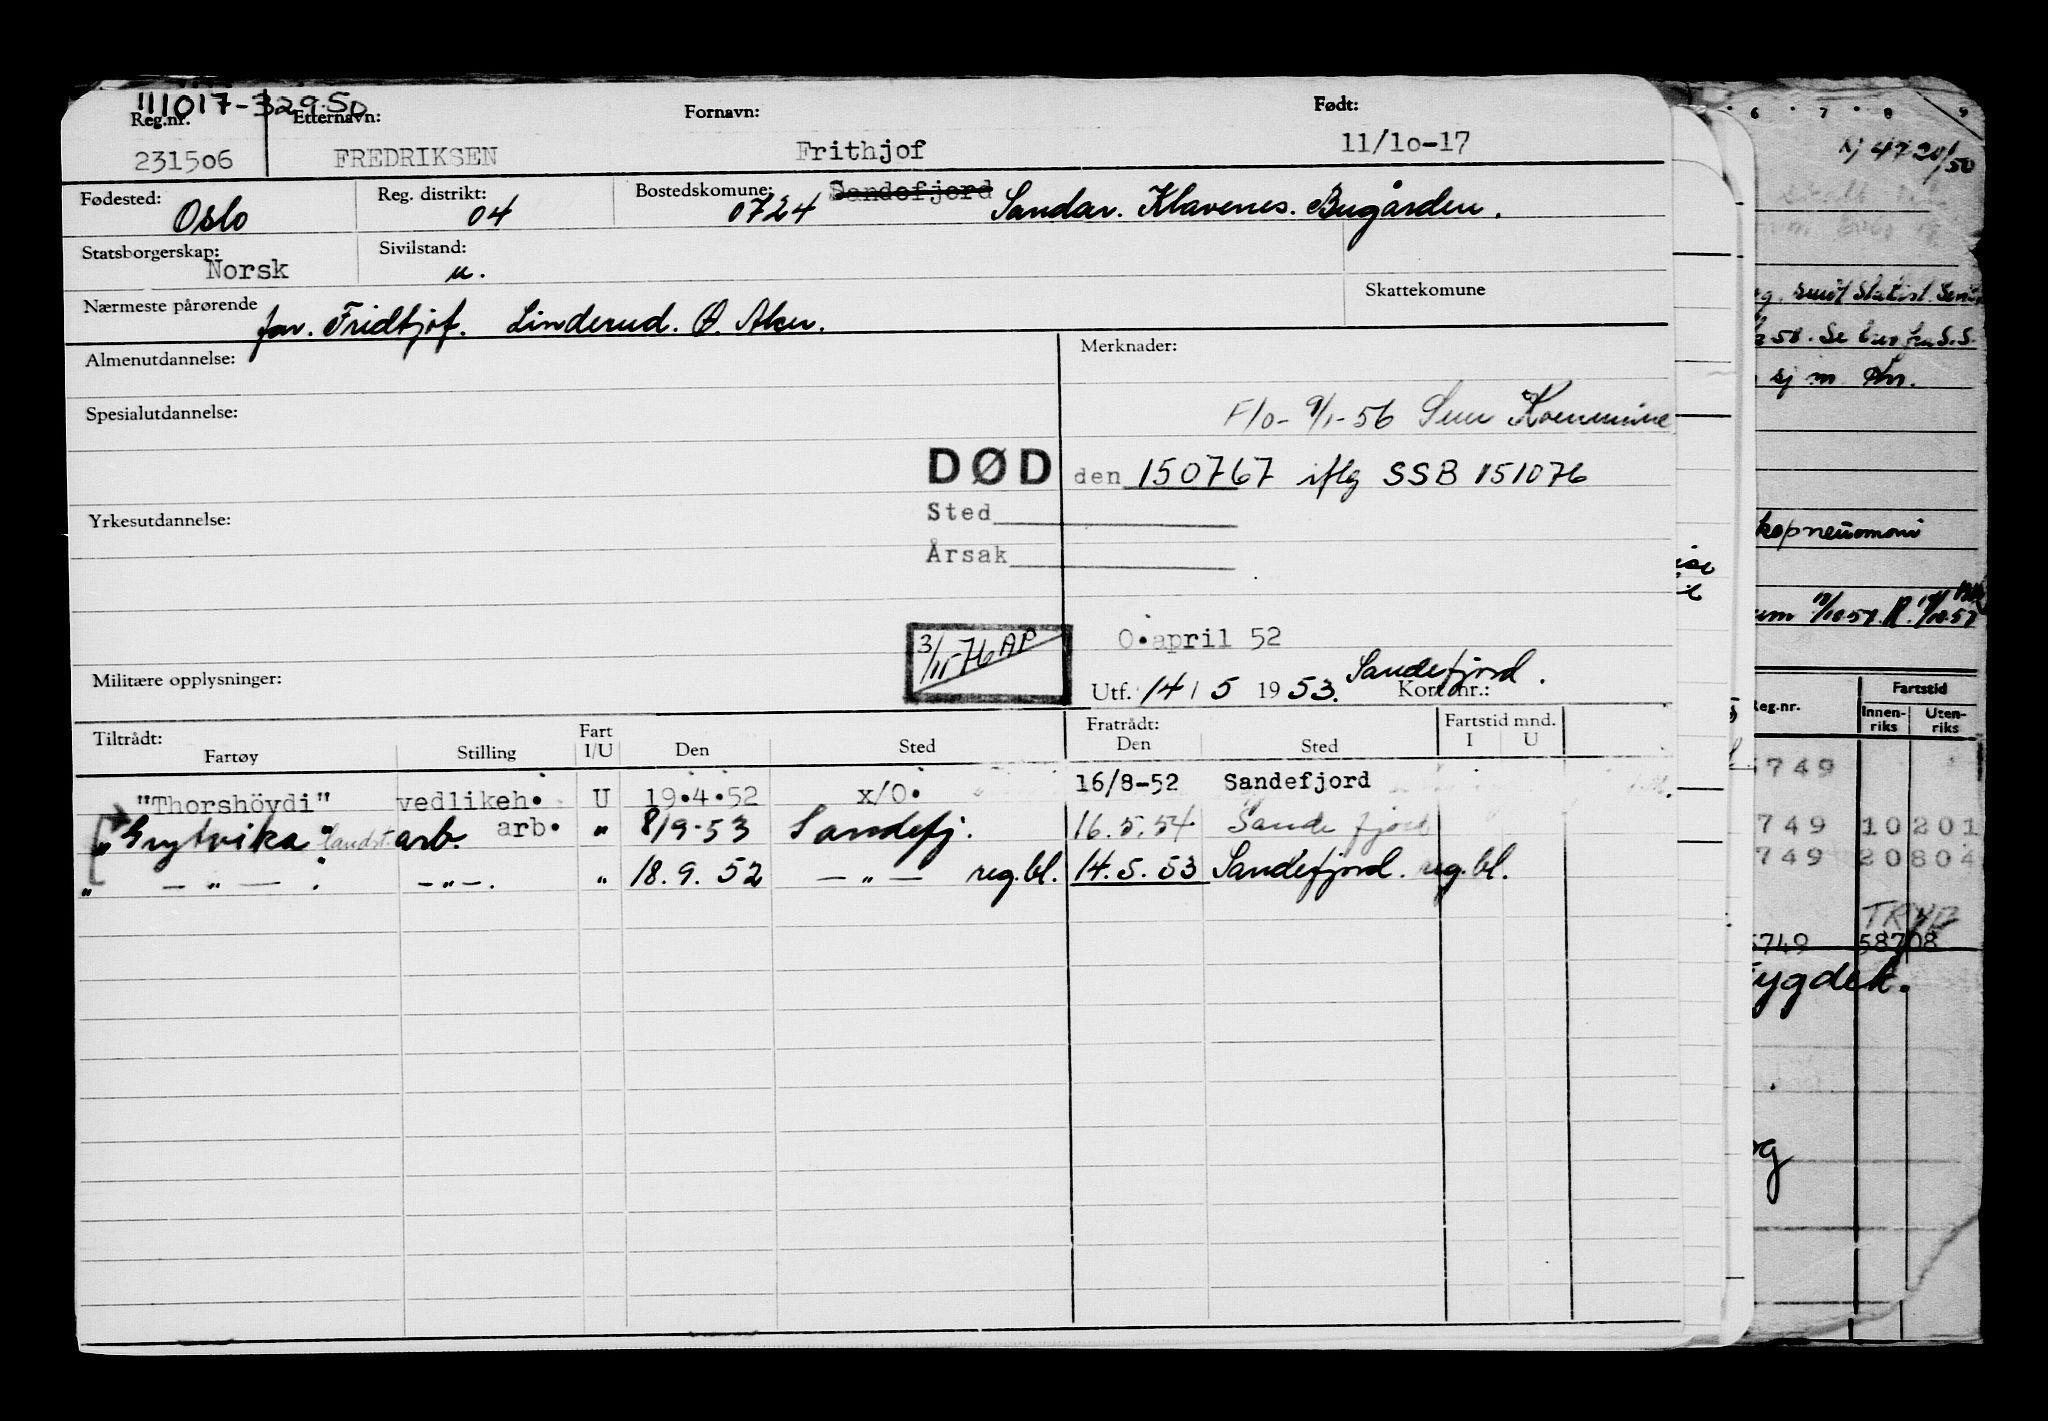 111017-32950
Reg.nr. Etternavn: Fornavn: Født:
231506 FREDRIKSEN Frithjof 11/10-17
Fødested: Oslo Reg. distrikt: 04 Bostedskomune: 0724 Sandefjord Sandar. Klavenes. Bugården.
Statsborgerskap: Norsk Sivilstand: u.
Nærmeste pårørende far. Fridtjof. Linderud. Ø. Aker. Skattekomune
Almenutdannelse: Merknader:
Spesialutdannelse: F/0- 9/1-56 Sem Kommune
DØD den 150767 iflg SSB 151076
Yrkesutdannelse: Sted
Årsak
3/11-76 AP O.april 52
Militære opplysninger: Utf. 14/5 1953. Sandefjord. Kort nr.:
Tiltrådt: Fratrådt: Fartstid mnd.
Fartøy Stilling Fart I/U Den Sted Den Sted I U
"Thorshöydi" vedlikeh. arb. U 19.4.52 x/O. 16/8-52 Sandefjord
"Grytvika" landst. arb. " 8/9-53 Sandefj. 16.5.54 Sandefjord
" — " — . — " —. " 18.9.52 — " — reg.bl. 14.5.53 Sandefjord. reg.bl.
6 7 8 9
4720/50
kopneumoni
Reg.nr. Fartstid
Innen-riks Uten-riks
749
749 10201
749 20804
TRYD
5749 58708
rygdek.
og